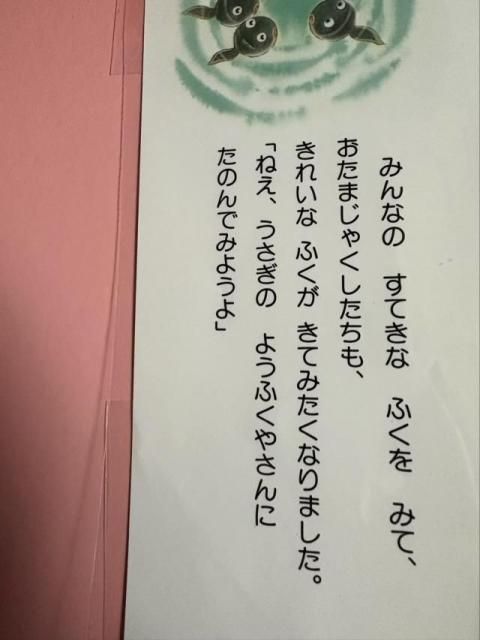 みんなの　すてきな　ふくを　みて、
おたまじゃくしたちも、
きれいな　ふくが　きてみたくなりました。
「ねえ、うさぎの　ようふくやさんに
たのんでみようよ」